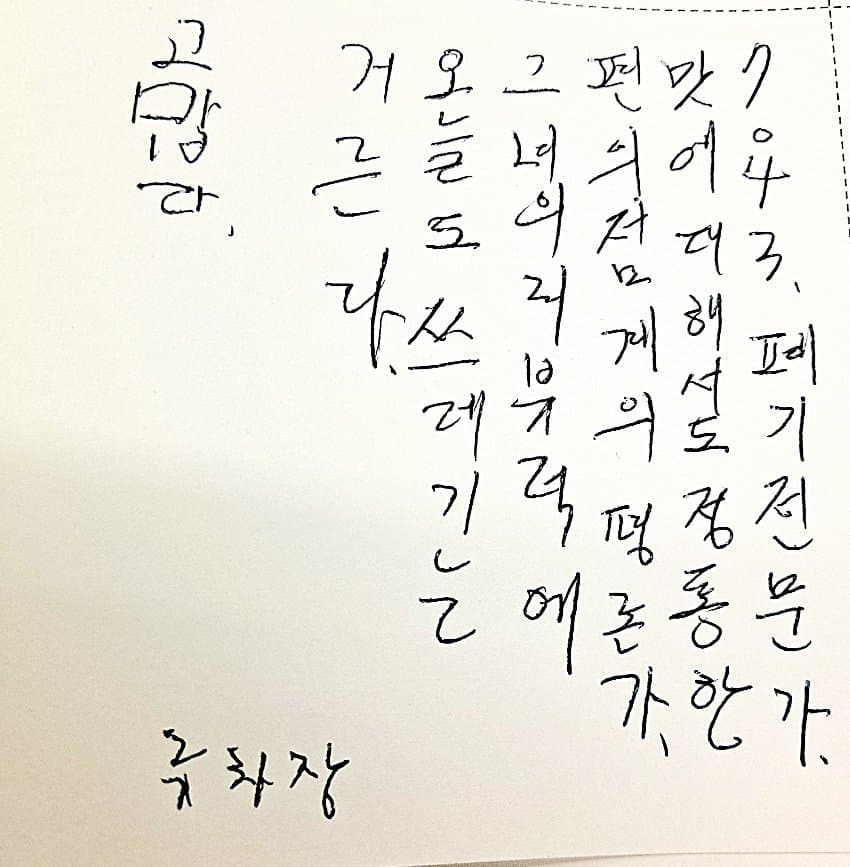 폐기전문가.
맛에대해서도정통한
편의점계의평론가,
그녀의리뷰력에
오늘도 쓰레기는
거른다.
고맙다.
류차장